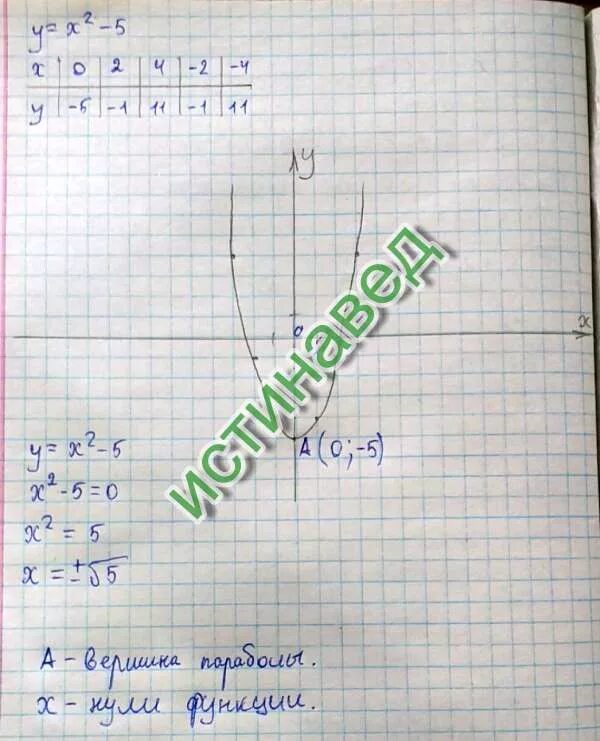 y = x² - 5
x | 0 | 2 | 4 | -2 | -4
y | -5 | -1 | 11 | -1 | 11
y
x
0
истинавед
A(0;-5)
y = x² - 5
x² - 5 = 0
x² = 5
x = ±√5
A - вершина параболы.
x - нули функции.